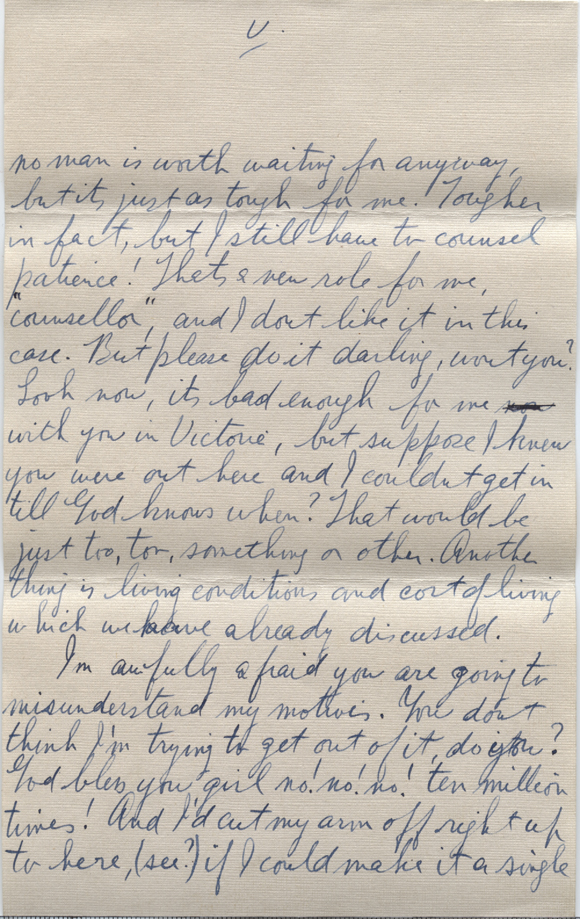 V.
no man is worth waiting for anyway,
but its just as tough for me. Tougher
in fact, but I still have to counsel
patience! Thats a new role for me,
"counsellor", and I dont like it in this
case. But please do it darling, wont you?
Look now, its bad enough for me
with you in Victoria, but suppose I knew
you were out here and I couldnt get in
till God knows when? That would be
just too, too, something or other. Another
thing is living conditions and cost of living
which we have already discussed.
I'm awfully afraid you are going to
misunderstand my motives. You don't
think I'm trying to get out of it, do you?
God bless you girl no! no! no! ten million
times! And I'd cut my arm off right up
to here, (see?) if I could make it a single